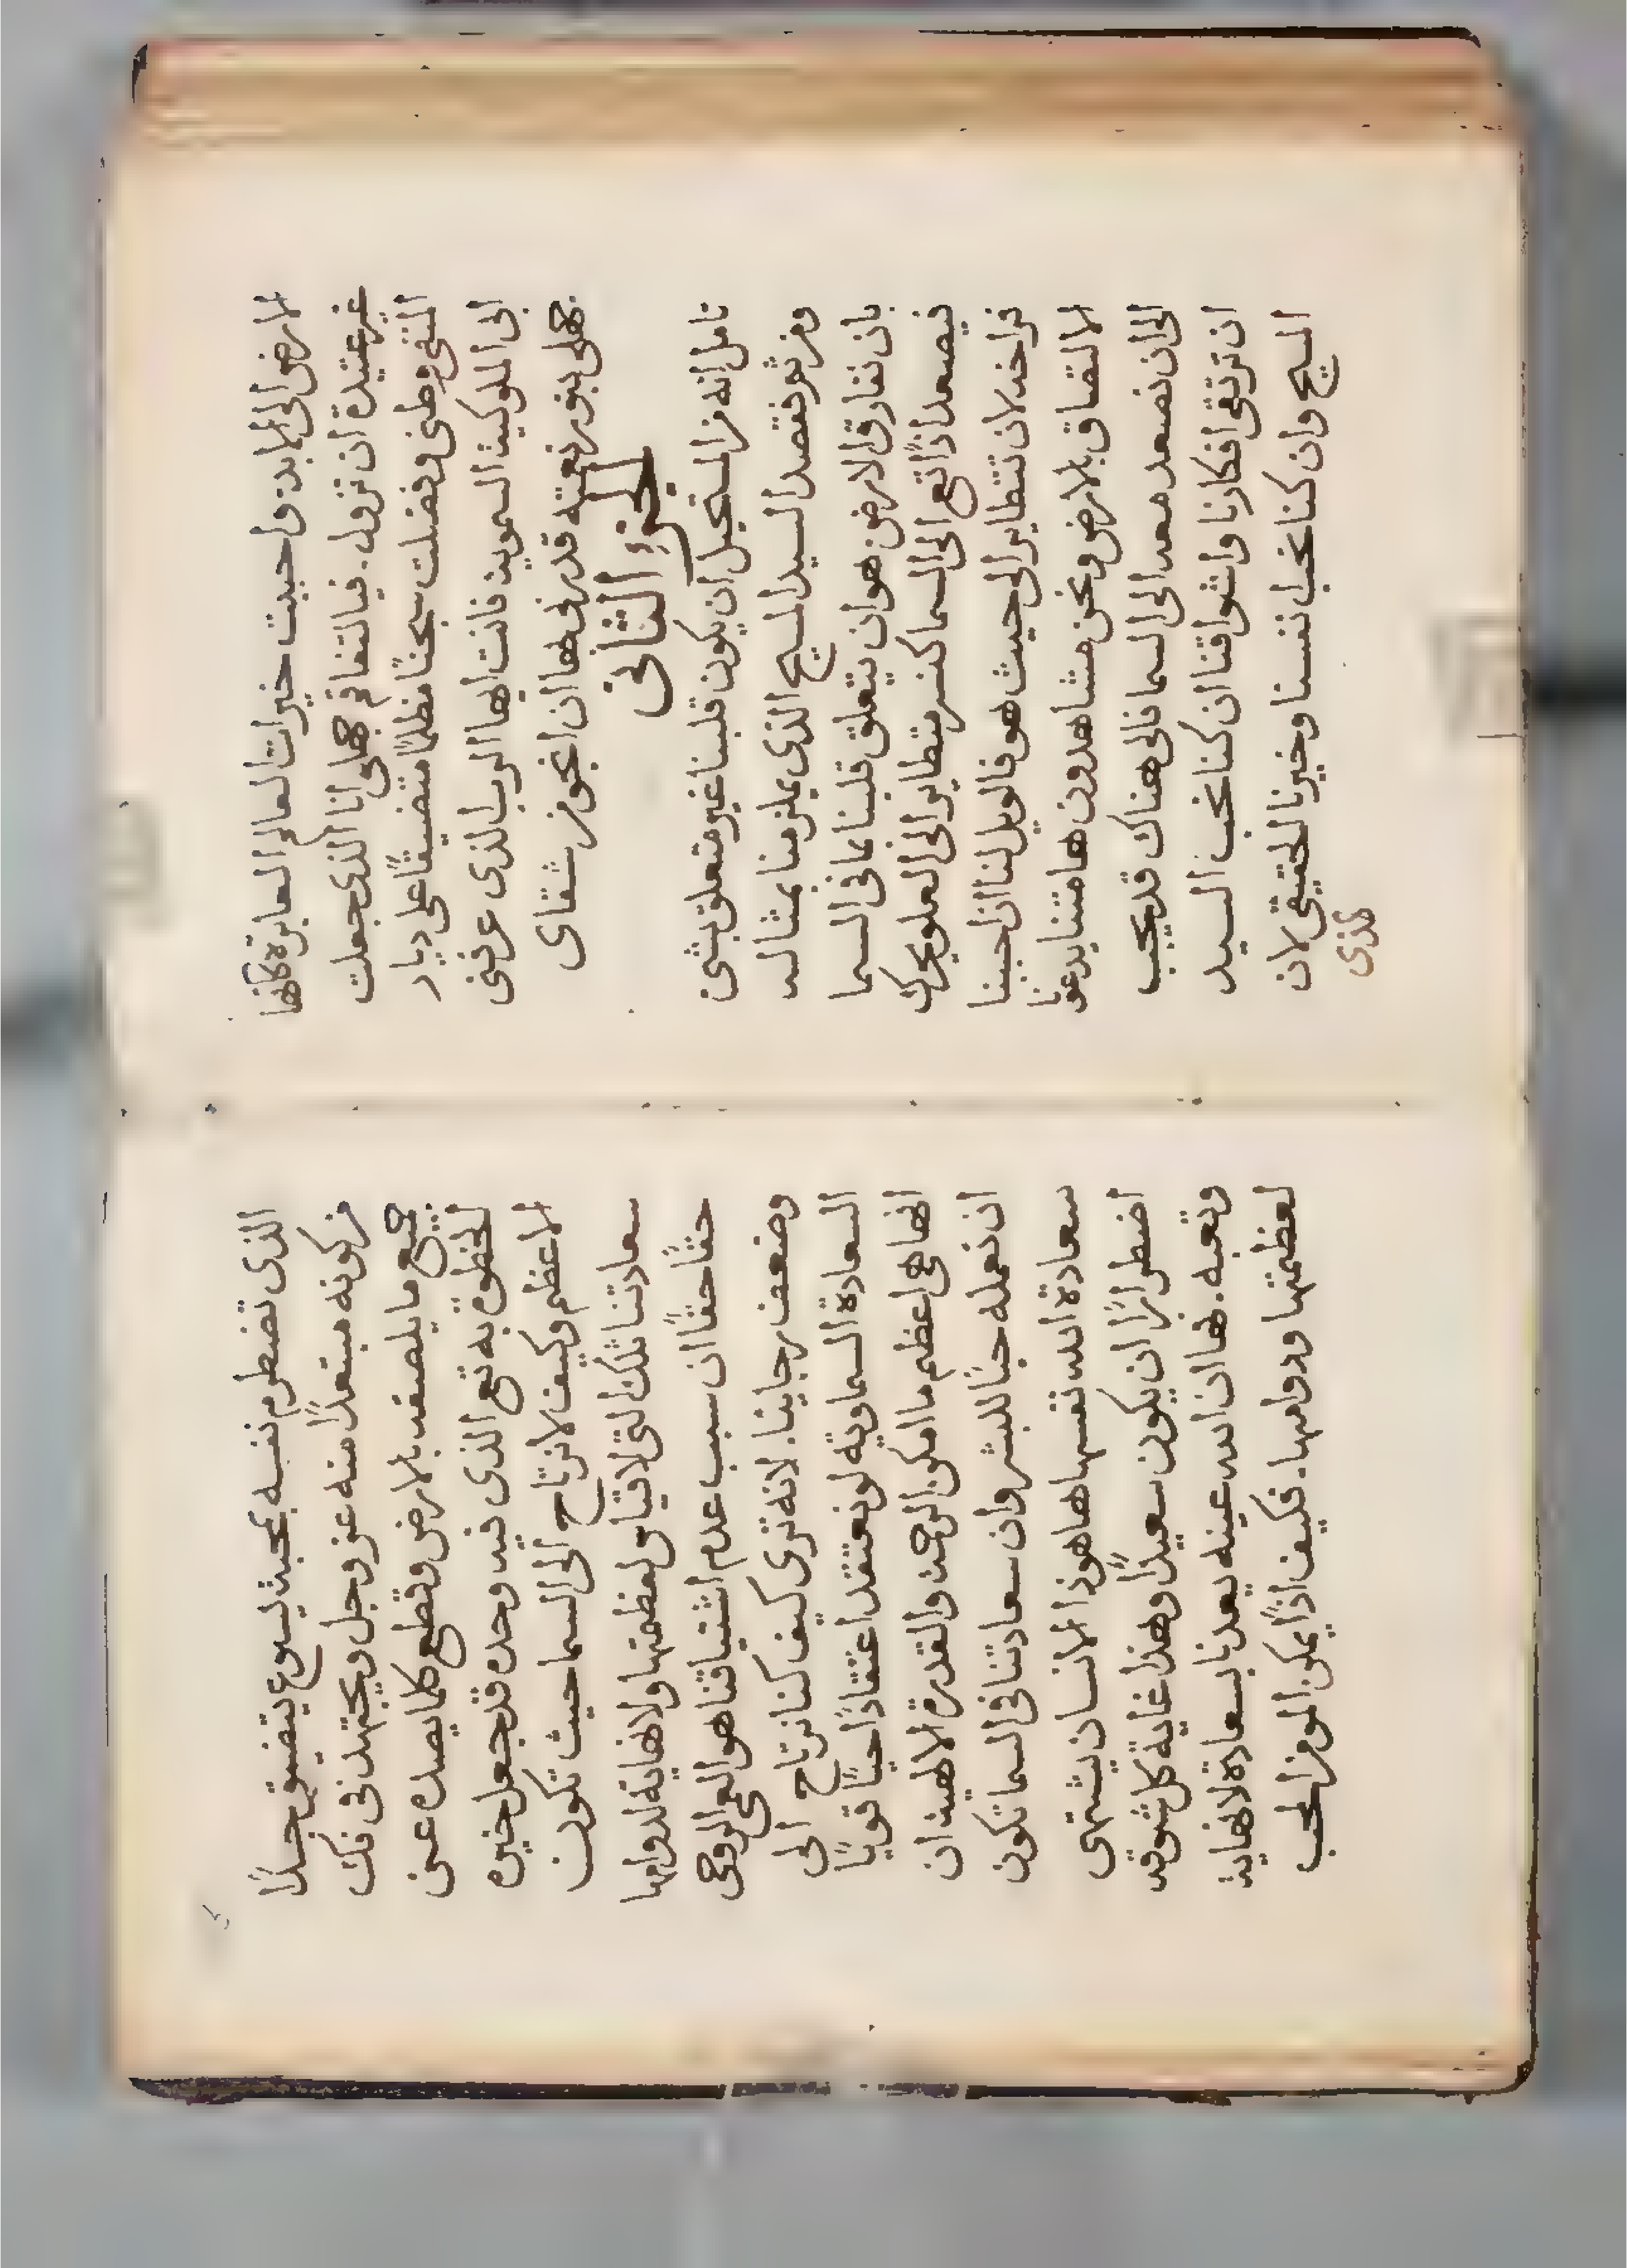 الارض الى الابد. واحببت خيرات العالم العابرة كانها
غير عتيدة ان تزول. فيالتفاقم جهلي انا الذي جعلت
المنفى وطني وفضلت سجنًا مظلمًا متضيقًا على ديار
ابي الملوكية السموية فانت ايها الرب الذي عرفني
جهلي بنور نعمته قدرني بها ان انجو من شقاي
الجزء الثاني
تامل انه من المستحيل ان يكون قلبنا غير متعلق بشي
ومن ثم فقصد السيد المسيح الذي يلزمنا بمثاله
بان نفارق الارض هو ان يتعلق قلبنا بما في السما
فيصعد اذًا تع الى السما كنسر متطاير الى العلو يحرك
فراخه لان تتطاير الى حيث هو فالويل لنا ان احببنا
الالتصاق بالارض ونحن مشاهدون هامتنا يدعونا
الى ان نصعد معه الى السما فالى هناك قد يجب
ان ترتقي افكارنا واشواقنا ان كنا نحب السيد
المسيح وان كنا نحب انفسنا وخيرنا الحقيقي لان
الذي
الذي تضطرم نفسه بمحبة يسوع يتضيق جدًا
من كونه مبتعدًا منه عز وجل ويجتهد في فك
جميع ما يلصقه بالارض وقطع كلما يصده عن
الحظوة به تع الذي فيه وحده قد جعل خيره
الاعظم وكيف لا نرتاح الى السما حيث تكون
سعادتنا تلك التي لا قياس لعظمتها ولا نهاية لدوامها
حقًا حقًا ان سبب عدم اشتياقنا هو العمى الروحي
وضعف رجاينا. لانه ترى كيف كنا نرتاح الى
السعادة السماوية لو نعتقد اعتقادًا حيًا قويًا
انها هي اعظم ما امكن الرحمة والقدرة الالهية ان
ان نعمله حبًا للبشر وان سعادتنا في السما تكون
سعادة الله نفسها هاهوذا الانسان يشتهي
اضطرارًا ان يكون سعيدًا وهذا غاية كل شوقه
وتعبه. فها ان الله عينه يعدنا بسعادة لا نهاية
لعظمتها ودوامها. فكيف اذًا يمكن المومن المحب